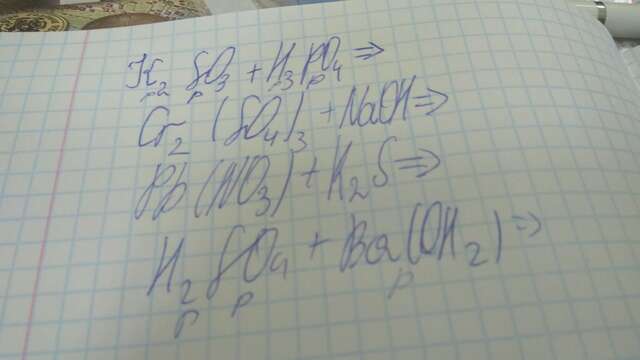 K2 SO3 + H3 PO4 ⇒
Cr2 (SO4)3 + NaOH ⇒
Pb(NO3) + K2S ⇒
H2 SO4 + Ba(OH2) ⇒